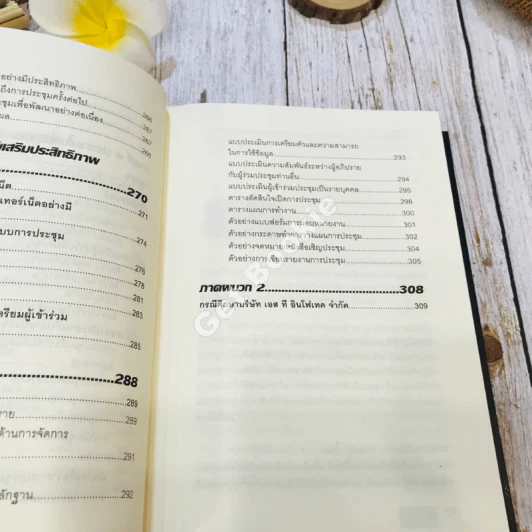 อย่างมีประสิทธิภาพ
ถึงการประชุมครั้งต่อไป 266
ชุมเพื่อพัฒนาอย่างต่อเนื่อง 267
ผล 267
268
เสริมประสิทธิภาพ
270
น็ต 271
เทอร์เน็ตอย่างมี
274
บบการประชุม
276
278
281
283
ตรียมผู้เข้าร่วม
285
288
289
ราย 289
ด้านการจัดการ
291
ลักฐาน 292
แบบประเมินการเตรียมตัวและความสามารถ
ในการใช้ข้อมูล 293
แบบประเมินความสัมพันธ์ระหว่างผู้อภิปราย
กับผู้ร่วมประชุมท่านอื่น 294
แบบประเมินผู้เข้าร่วมประชุมเป็นรายบุคคล 295
ตารางตัดสินใจเปิดการประชุม 298
ตารางแผนการทำงาน 300
ตัวอย่างแบบฟอร์มการมอบหมายงาน 301
ตัวอย่างกระดาษทำการวางแผนการประชุม 302
ตัวอย่างจดหมาย/หนังสือเชิญประชุม 304
ตัวอย่างการเขียนรายงานการประชุม 305
ภาคผนวก 2 308
กรณีศึกษาบริษัท เอส ที อินโฟเทค จำกัด 309